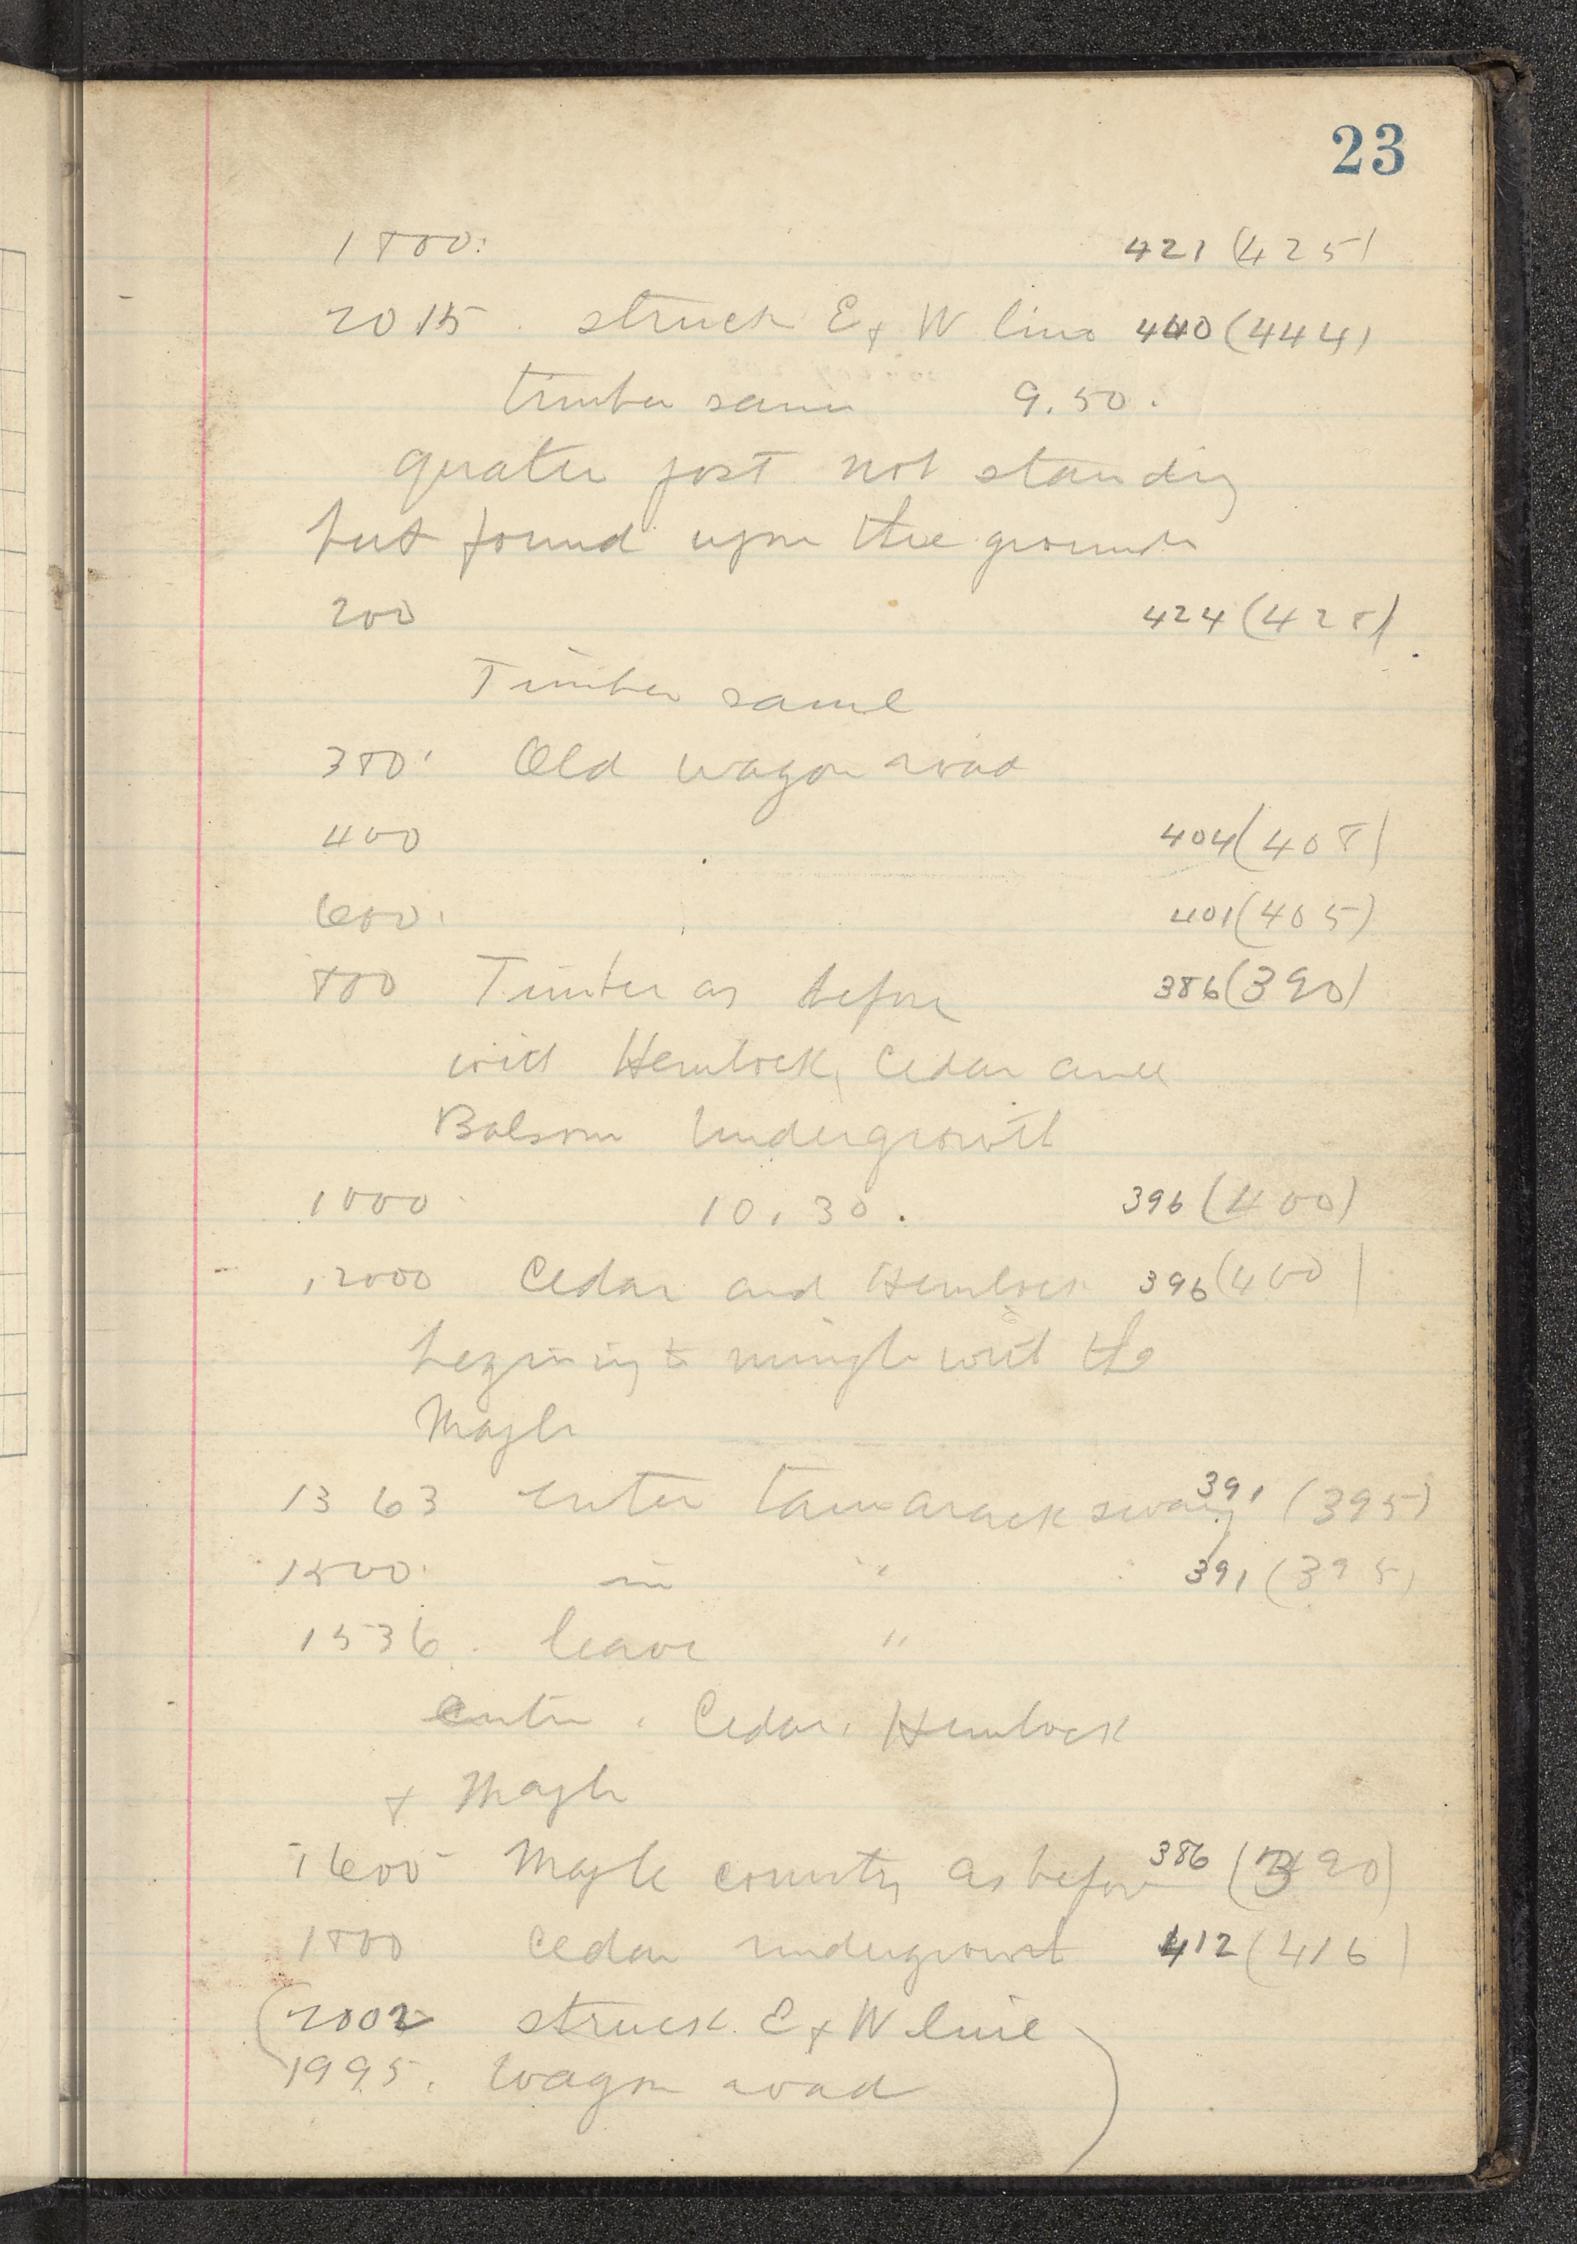 23
1800. 421 (425)
2015. struck E & W line 440 (444)
timber same 9.50.
quater post not standing
but found upon the ground
200 424 (428)
Timber same
380' Old wagon road
400 404 (408)
600. 401 (405)
800 Timber as before 386 (390)
with Hemlock, Cedar and
Balsom Undergrowth
1000 10.30. 396 (400)
12000 Cedar and Hemlock 396 (400)
begining to mingle with the
Maple
1363 enter tamarack swamp 391 (395)
1500. in " 391 (395)
1536. leave "
enter. Cedar, Hemlock
& Maple
1600 Maple country as before 386 (390)
1800 Cedar undergrowth 412 (416)
(2002 struck E & W line
1995. Wagon road)